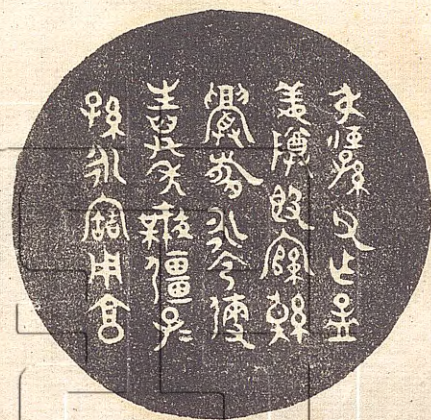 叔孫父作孟
姜尊簋綰綽
眉壽永令彌
生萬年無疆子
孫永寶用享